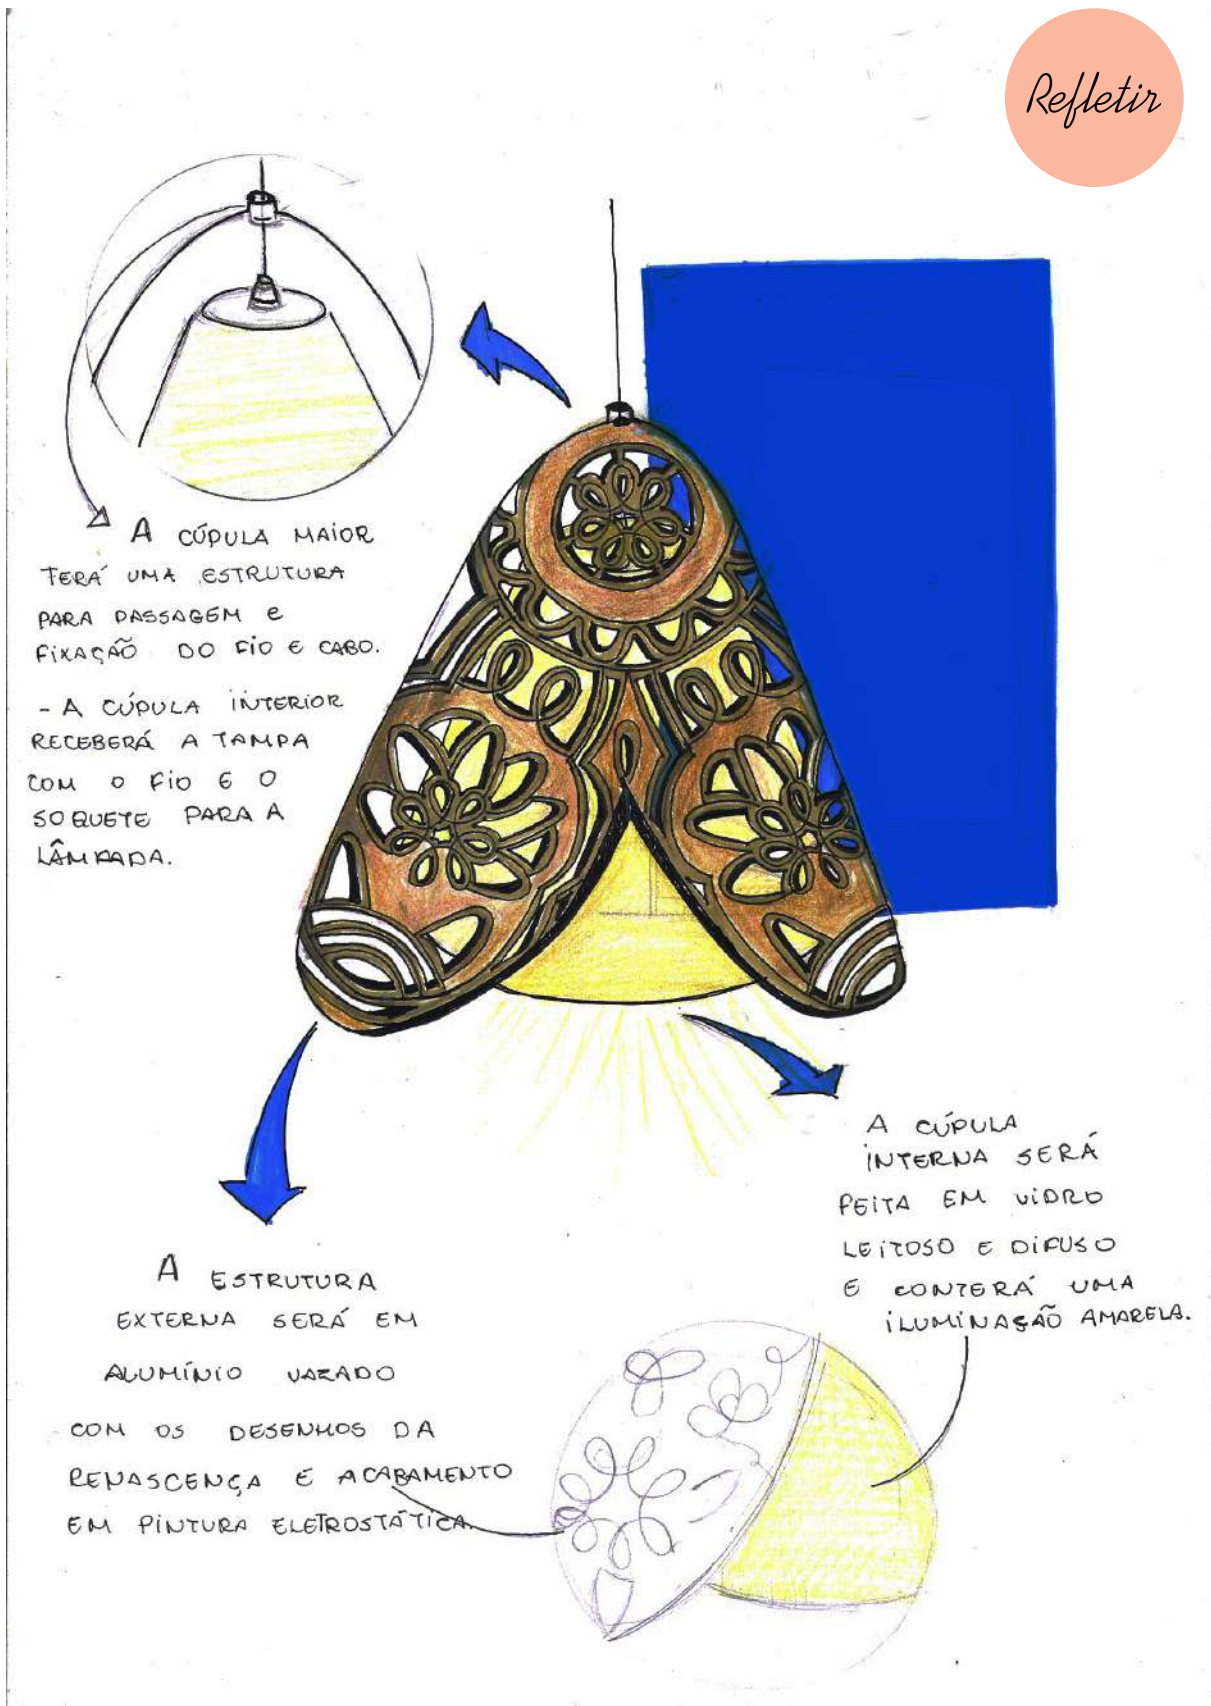 Refletir
A CÚPULA MAIOR
TERÁ UMA ESTRUTURA
PARA PASSAGEM E
FIXAÇÃO DO FIO E CABO.
- A CÚPULA INTERIOR
RECEBERÁ A TAMPA
COM O FIO E O
SOQUETE PARA A
LÂMPADA.
A CÚPULA
INTERNA SERÁ
FEITA EM VIDRO
LEITOSO E DIFUSO
E CONTERÁ UMA
ILUMINAÇÃO AMARELA.
A ESTRUTURA
EXTERNA SERÁ EM
ALUMÍNIO VAZADO
COM OS DESENHOS DA
RENASCENÇA E ACABAMENTO
EM PINTURA ELETROSTÁTICA.